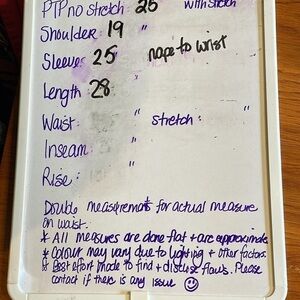 PTP no stretch: 25 " with stretch
Shoulder: 19 "
Sleeves: 25 " nape to wrist
Length: 28 "
Waist: " stretch:
Inseam: "
Rise:
Double measurements for actual measure
on waist.
* All measures are done flat + are approximate
* Colour may vary due to lighting + other factors
* Best effort made to find + disclose flaws. Please
contact if there is any issue ☺